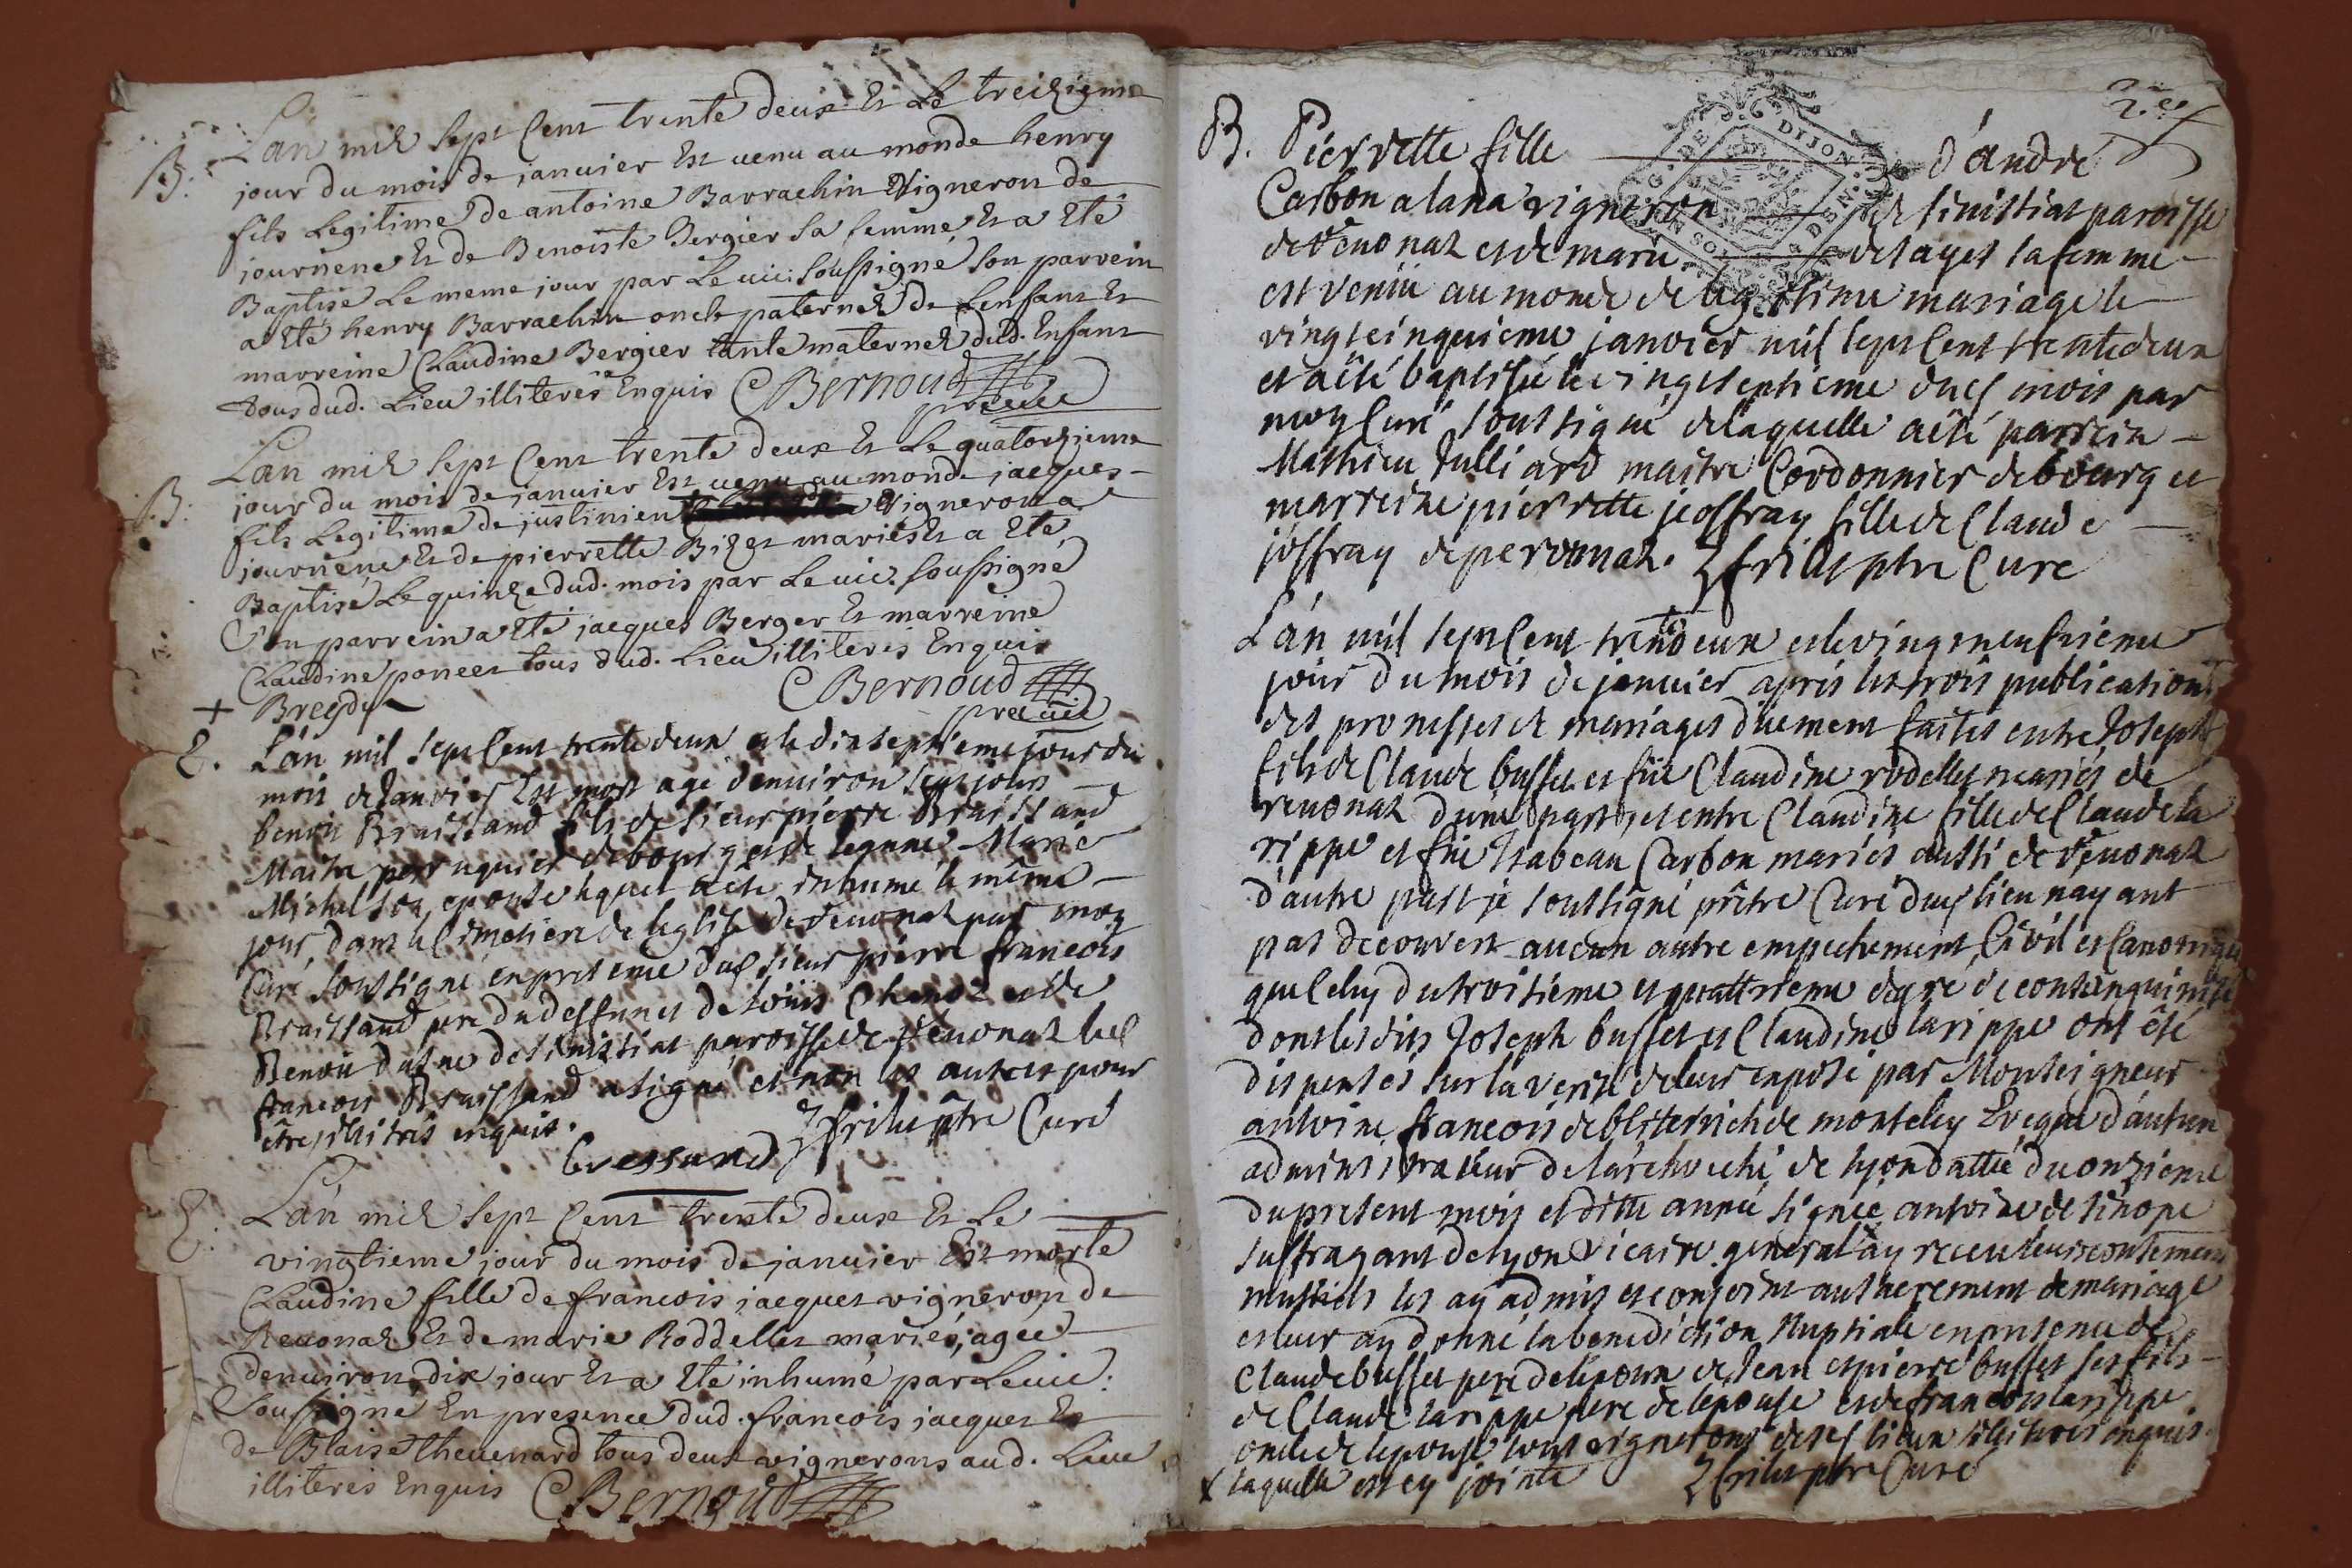 B. Lan mil sept Cent trente deux Et Le treizieme
jour du mois de januier Est uenu au monde henry
fils Legitime de antoine Barrachin Vigneron de
journene Et de Benoiste Bergier sa femme, Et a Eté
Baptisé Le meme jour par Le uic: soussigné son parrein
a Eté henry Barrachin oncle paternel de Lenfant Et
marreine Claudine Bergier tante maternel dud. Enfant
tous dud. Lieu illiterés Enquis C Bernoud
pr. et uic
B. Lan mil sept Cent trente deux Et Le quatorzieme
jour du mois de januier Est uenu au monde jacques
fils Legitime de justinien Vigneron a
journene Et de pierrette Bizet mariés Et a Eté
Baptisé Le quinze dud. mois par Le uic. soussigné
Son parrein a Eté jacques Berger Et marreine
Claudine poncet tous dud. Lieu illiterés Enquis
+ Breyd C Bernoud
pr et uic
E. L'an mil sept Cent trente deux et le dix septieme jour du
mois de Janvier Est mort agé d'environ sept jours
benoit Braissand fils de sieur pierre Braissand
Maitre perruquier de bourg et de Marie
Michel son epouse lequel a été inhumé le même
jour, dans le Cimetiere de leglise de revonat par moy
Curé soussigné en presence dud sieur pierre francois
Braissand pere du deffunct de loüis Chanel et de
Benoit de sinissiat paroisse de revonat led
francois Braissand a signé et non les autres pour
être illitrés enquis.
bressand frilet ptre Curé
E. L'an mil sept Cent trente deux Et Le
vingtieme jour du mois de januier Est morte
Claudine fille de francois jacquet vigneron de
Reuonaz Et de marie Roddellet mariés, agée
denuiron dix jour Et a Eté inhumé par Le uic.
Soussigné En presence dud. francois jacquet Et
de Blaise theuenard tous deux vignerons aud. Lieu
illiterés Enquis C Bernoud
2e
B. Pierrette fille d'andré
Carbon alana vigneron de sinissiat paroisse
de reuonaz et de marie des ayes sa femme
est veniu au monde de legitime mariage le
vingt cinquieme janvier mil sept Cent trente deux
et a été baptisée le vingt septieme dud mois par
moy Curé soussigné de laquelle a été parrein
Mathieu Julliard maitre Cordonnier de bourg et
marreine pierrette jeoffray fille de Claude
joffray de peronnat. frilet ptre Cure
G. DE DIJON
L'an mil sept Cent trente deux et le vingt neufvieme
jour du mois de januier apres les trois publications
des promesses de mariages düement faites entre Joseph
fils de Claude buffet et füe Claudine rodellet mariés de
revonaz d'une part, et entre Claudine fille de Claude la
rippe et füe Isabeau Carbon mariés aussi de reuonaz
d'autre part je soussigné prêtre Curé dud lieu nayant
pas decouvert aucun autre empechement Civil et Canonique
que Celuy du troisieme et quattrieme degré de consanguinité
dont lesdits Joseph buffet et Claudine larippe ont été
dispensés sur la verité de leur exposé par Monseigneur
antoine francois de blitterswich de monteley Evêque d'autun
administrateur de l'archevêché de lyon dattée du onzieme
du present mois et ditte année signée antoine de sinope
suffragant de lyon vicaire general x ay receu leur consentement
mutuels les ay admis et conferé au sacrement de mariage
et leur ay donné la benediction Nuptiale en presence de
Claude buffet pere de l'epoux de Jean et pierre buffet ses fils
de Claude larippe pere de lepouse et de francois larippe
oncle de lepouse tous vignerons dud lieu illitrés enquis.
x laquelle est cy jointe frilet ptre Curé